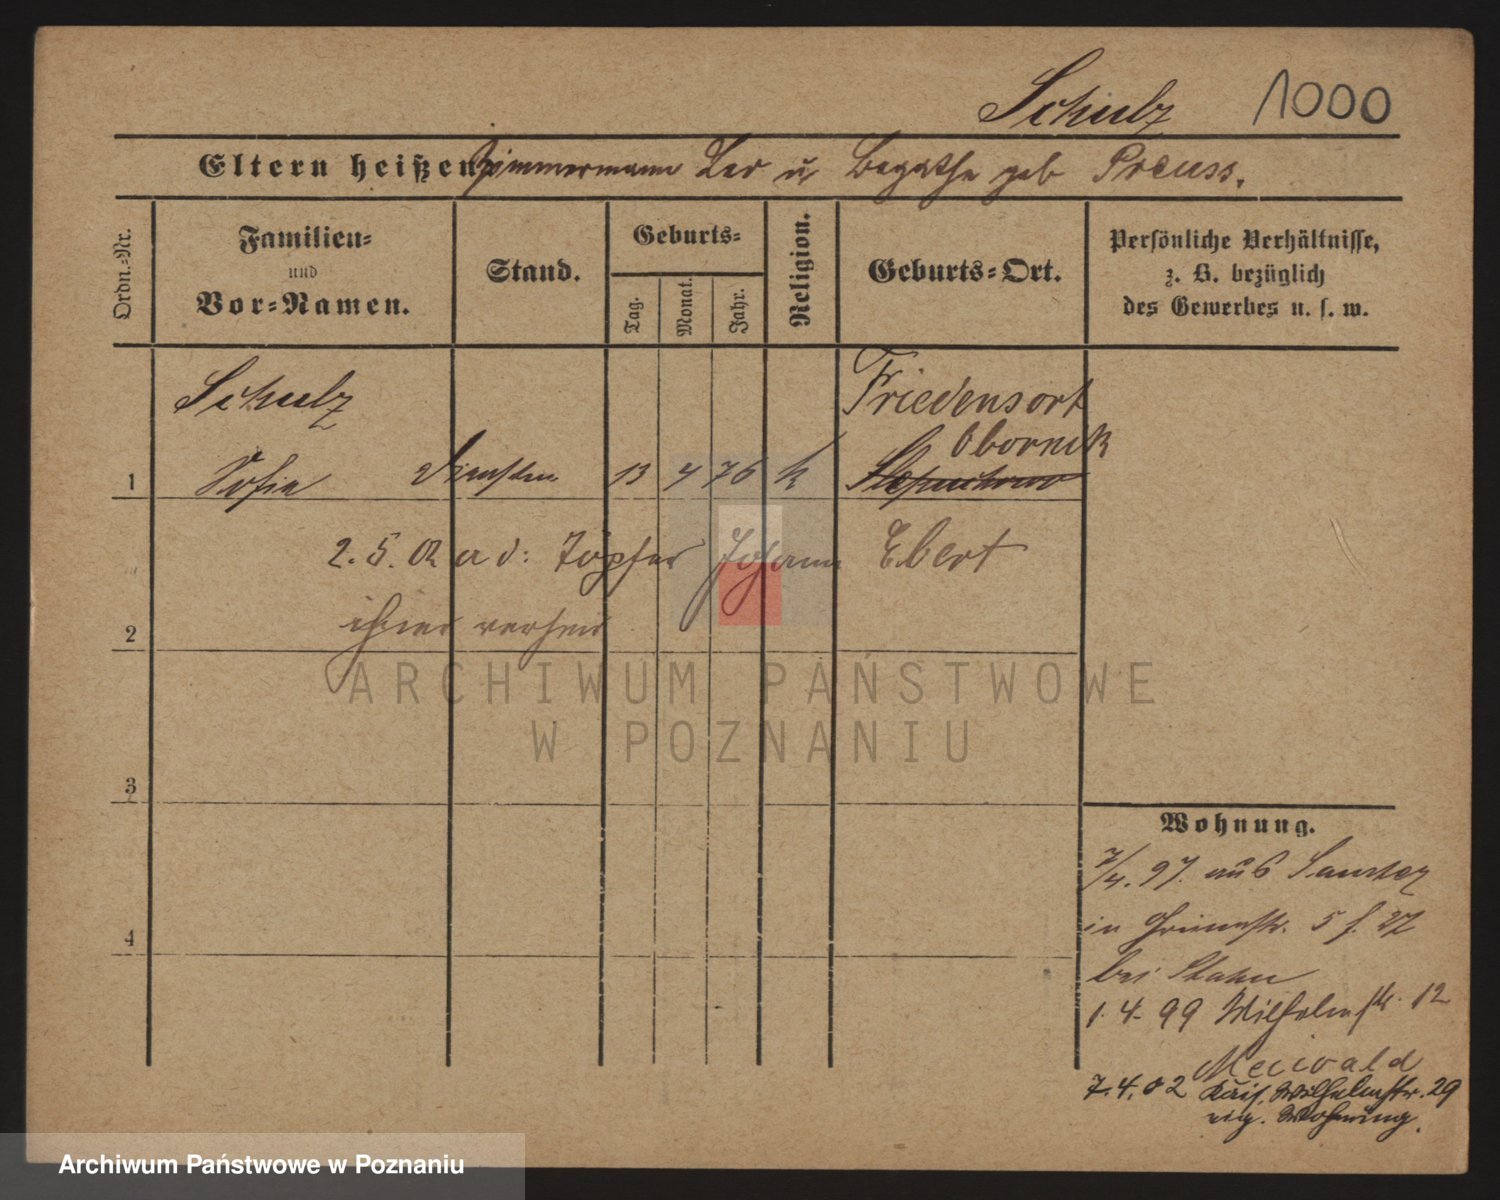 Schulz 1000
Eltern heißen: Zimmermann Leo u. Bagathe geb Preuss.
Ordn.-Nr.
Familien-
und
Vor-Namen.
Stand.
Geburts-
Tag.
Monat.
Jahr.
Religion.
Geburts-Ort.
Persönliche Verhältnisse,
z. B. bezüglich
des Gewerbes u. s. w.
Schulz
Friedensort
Obornik
1 Sofie 13 4 76 k
2. 5. 02 a d: Töpfer Johann Ebert
2
3
4
Wohnung.
7/4. 97. aus Samter
in 5
bei
1. 4. 99 Wilhelmstr. 12
Meiwald
7. 4. 02 Kais. Wilhelmstr. 29
eig. Wohnung.
ARCHIWUM PAŃSTWOWE
W POZNANIU
Archiwum Państwowe w Poznaniu